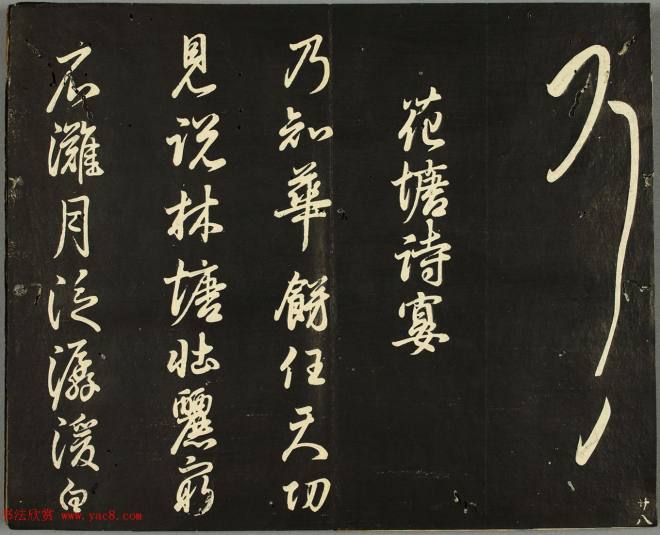 花塘詩宴
乃知華餝任天功
見説林塘壯麗窮
石灘月泛潺湲白
廿八
书法欣赏 www.yac8.com